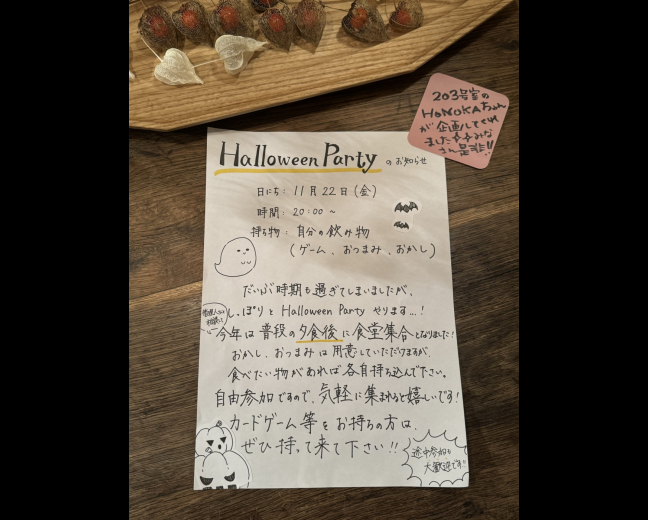 203号室の
HONOKAちゃん
が企画してくれ
ました✧✧みな
さん是非!!
Halloween Party のお知らせ
日にち: 11月22日(金)
時間: 20:00〜
持ち物: 自分の飲み物
(ゲーム、おつまみ、おかし)
だいぶ時期も過ぎてしまいましたが、
しっぽりと Halloween Party やります...!
管理人さんに
相談して
今年は普段の夕食後に食堂集合となりました!
おかし、おつまみは用意していただけますが、
食べたい物があれば各自持ち込んで下さい。
自由参加ですので、気軽に集まれると嬉しいです!
カードゲーム等をお持ちの方は、
ぜひ持って来て下さい!!
途中参加も
大歓迎です!!